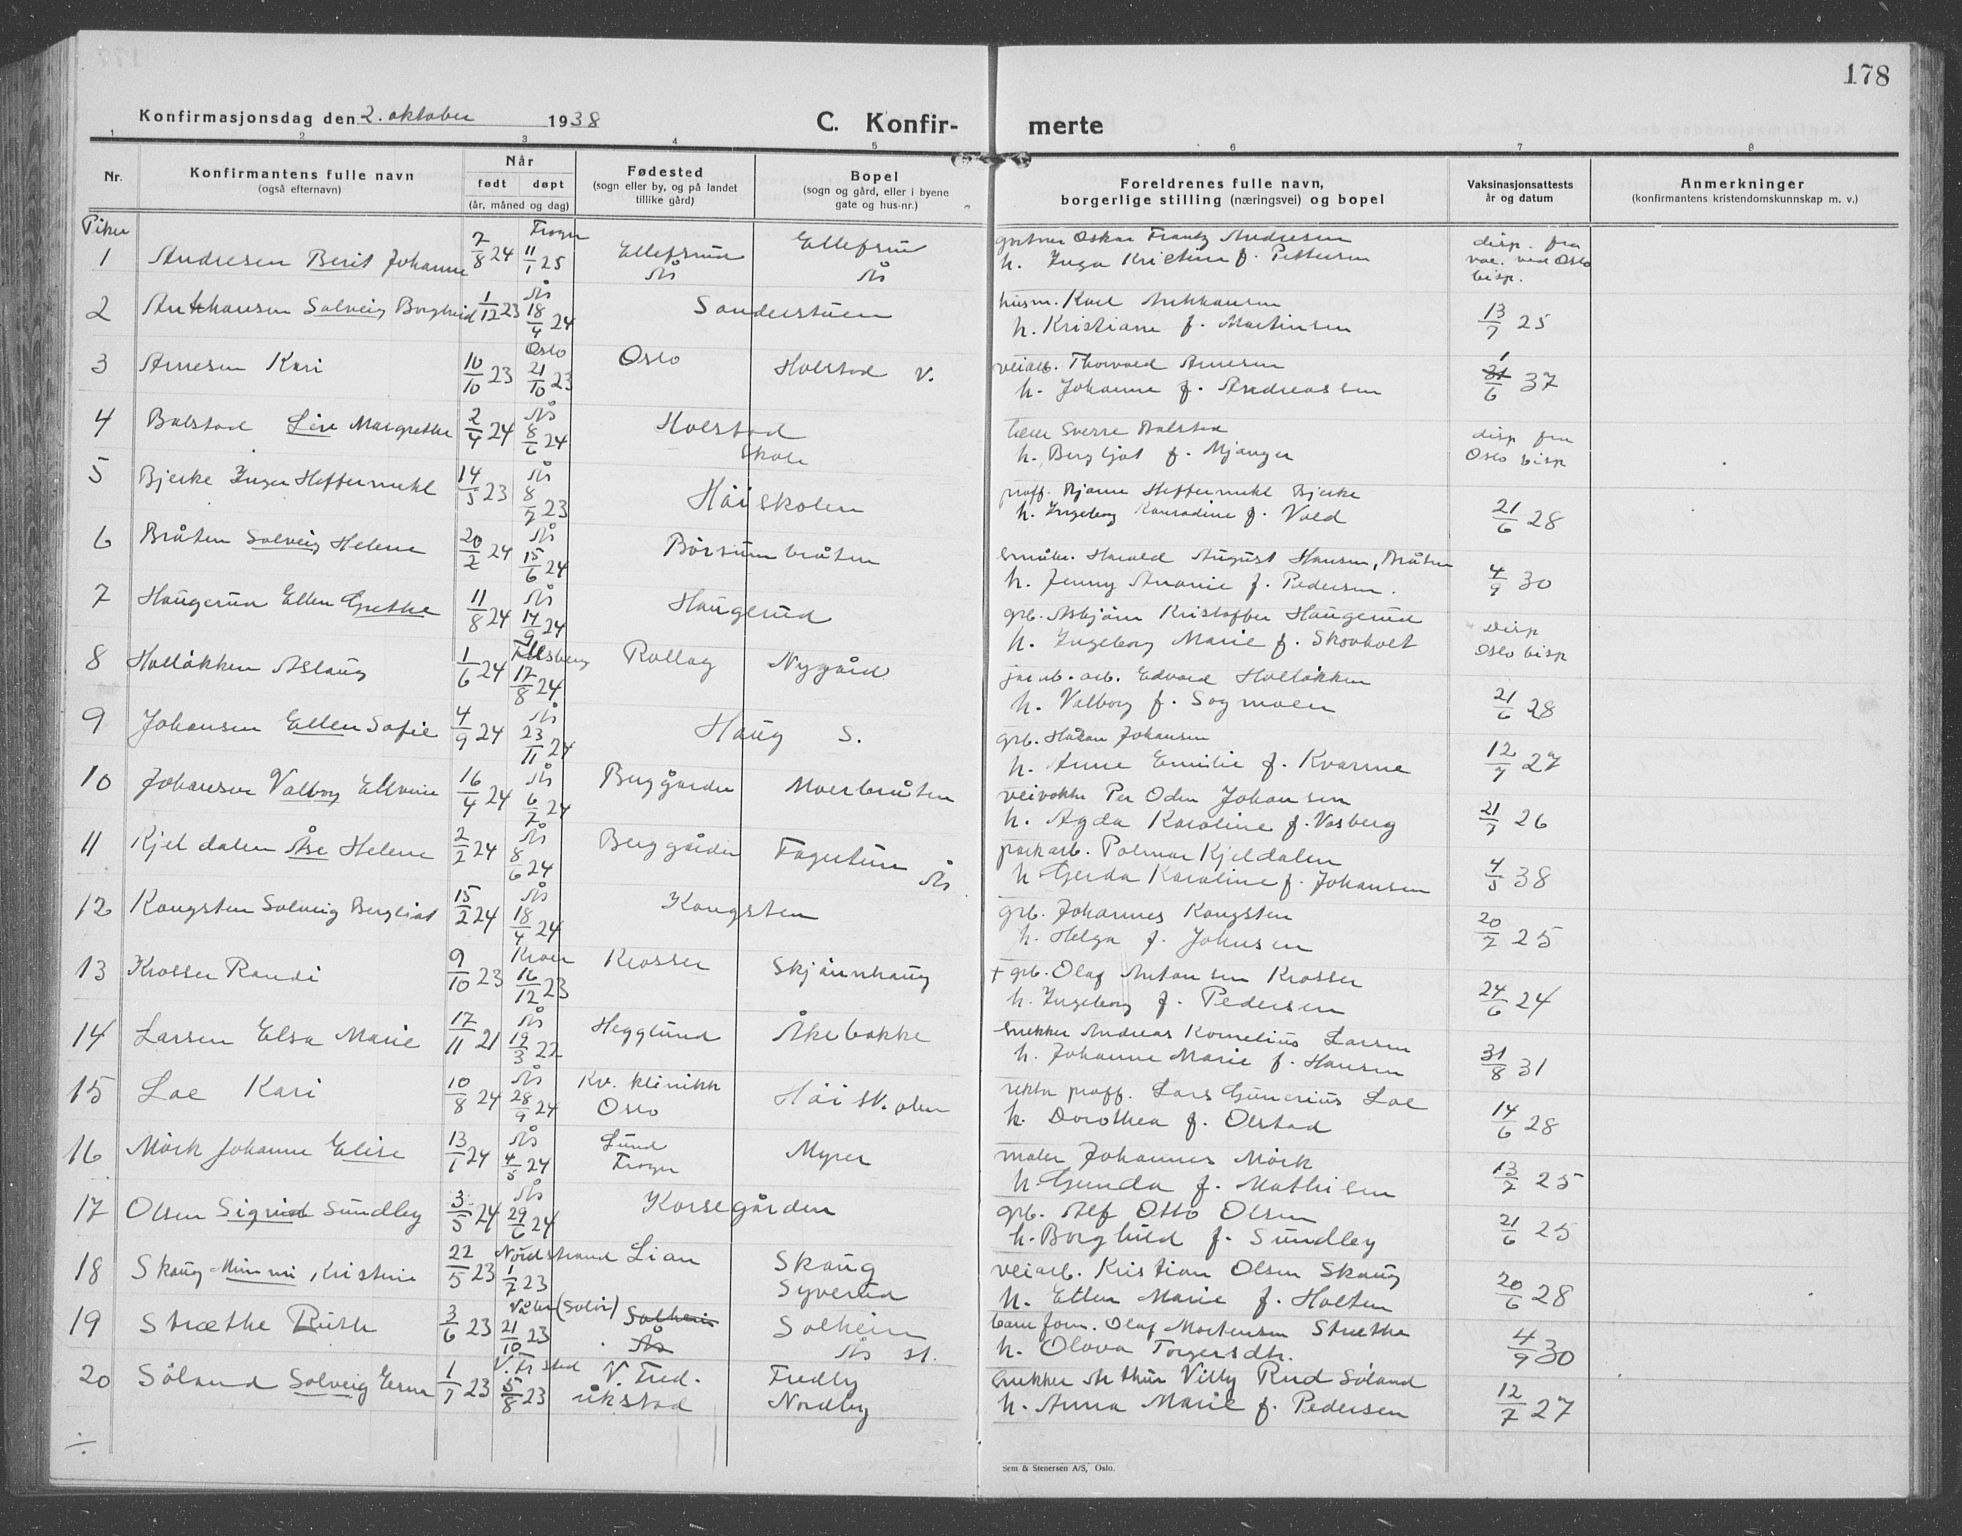 178
Konfirmasjonsdag den 2. oktober 1938
C. Konfir- merte
1 2 3 4 5 6 7 8
Nr.
Konfirmantens fulle navn
(også efternavn)
Når
født døpt
(år, måned og dag)
Fødested
(sogn eller by, og på landet
tillike gård)
Bopel
(sogn og gård, eller i byene
gate og hus-nr.)
Foreldrenes fulle navn,
borgerlige stilling (næringsvei) og bopel
Vaksinasjonsattests
år og datum
Anmerkninger
(konfirmantens kristendomskunnskap m. v.)
Piker
1 Andresen Berit Johanne 7/8 24 Frogn 11/1 25 Ellefsrud Ås Ellefsrud Ås gartner Oskar Frantz Andresen
h. Inga Kristine f. Pettersen disp. fra vac. ved Oslo bisp.
2 Ankhansen Solveig Borghild 1/12 23 Ås 18/4 24 Sonderstuen husm. Karl Ankhansen
h. Kristiane f. Martinsen 13/7 25
3 Arnesen Kari 10/10 23 Oslo 21/10 23 Oslo Holstad v. veiarb. Thorvald Arnesen
h. Johanne f. Andreassen 1 31/6 37
4 Balstad Lise Margrethe 2/4 24 Ås 8/6 24 Holstad skole lærer Sverre Balstad
h. Bergljot f. Mjanger disp fra Oslo bisp
5 Bjerke Inger Heffermehl 14/5 23 Ås 8/7 23 Höiskolen proff. Bjarne Heffermehl Bjerke
h. Ingeborg Konradine f. Vold 21/6 28
6 Bråten Solveig Helene 20/2 24 Ås 15/6 24 Börsumbråten småbr. Harald August Hansen, Bråten
h. Jenny Ananie f. Pedersen. 4/9 30
7 Haugerud Ellen Grethe 11/8 24 Ås 14/9 24 Haugerud grb. Asbjörn Kristoffer Haugerud
h. Ingeborg Marie f. Skovholt Disp Oslo bisp
8 Holtökken Aslaug 1/6 24 17/8 24 Rollag Nygård jarnb. arb. Edvard Holtökken
h. Valborg f. Sogmoen 21/6 28
9 Johansen Ellen Sofie 4/9 24 Ås 23/11 24 Haug S. grb. Håkon Johansen
h. Anne Emilie f. Kvarme 12/7 27
10 Johansen Valborg Elevine 16/4 24 Ås 6/7 24 Berggården Moerbråten veivokter Per Oden Johansen
h. Agda Karoline f. Vasberg 21/7 26
11 Kjeldalen Åse Helene 2/2 24 Ås 8/6 24 Berggården Fagertun Ås parkarb. Palmar Kjeldalen
h Gerda Karoline f. Johansen 4/5 38
12 Kongsten Solveig Bergliot 15/2 24 Ås 18/4 24 Kongsten grb. Johannes Kongsten
h. Helga f. Johnsen 20/7 25
13 Krosser Randi 9/10 23 Kroer 16/12 23 Krosser Skjönnhaug + grb. Olaf Antonsen Krosser
h. Ingeborg f. Pedersen 24/6 24
14 Larsen Elsa Marie 17/11 21 Ås 19/3 22 Hegglund Åkebakke snekker Andreas Kornelius Larsen
h. Johanne Marie f. Hansen 31/8 31
15 Loe Kari 10/8 24 Ås 28/9 24 Kv. klinikk Oslo Höisk.olen rektor proff. Lars Gunerius Loe
h. Dorothea f. Olstad 14/6 28
16 Mörk Johanne Elise 13/1 24 Ås 4/5 24 Lund Frogn Myrer maler Johannes Mörk
h. Gunda f. Mathisen 13/7 25
17 Olsen Sigrid Sundby 3/5 24 Ås 29/6 24 Korsegården grb. Alf Otto Olsen
h. Borghild f. Sundby 21/6 25
18 Skaug Mimmi, Kristine 22/5 23 Nordstrand 1/7 23 Lian Skaug Syverud veiarb. Kristian Olsen Skaug
h. Ellen Marie f. Holten 20/6 28
19 Stræthe Ruth 3/6 23 Våler (Solör) 21/10 23 Solheim Ås Solheim Ås st. baneform. Olaf Mortensen Stræthe
h. Olava Torgersdtr. 4/9 30
20 Söland Solveig Erna 1/7 23 V. Fr.stad 5/8 23 V. Fred- rikstad Fredly Nordby snekker Arthur Villy Rud Söland
h. Anna Marie f. Pedersen 12/7 27
Sem & Stenersen A/S, Oslo.